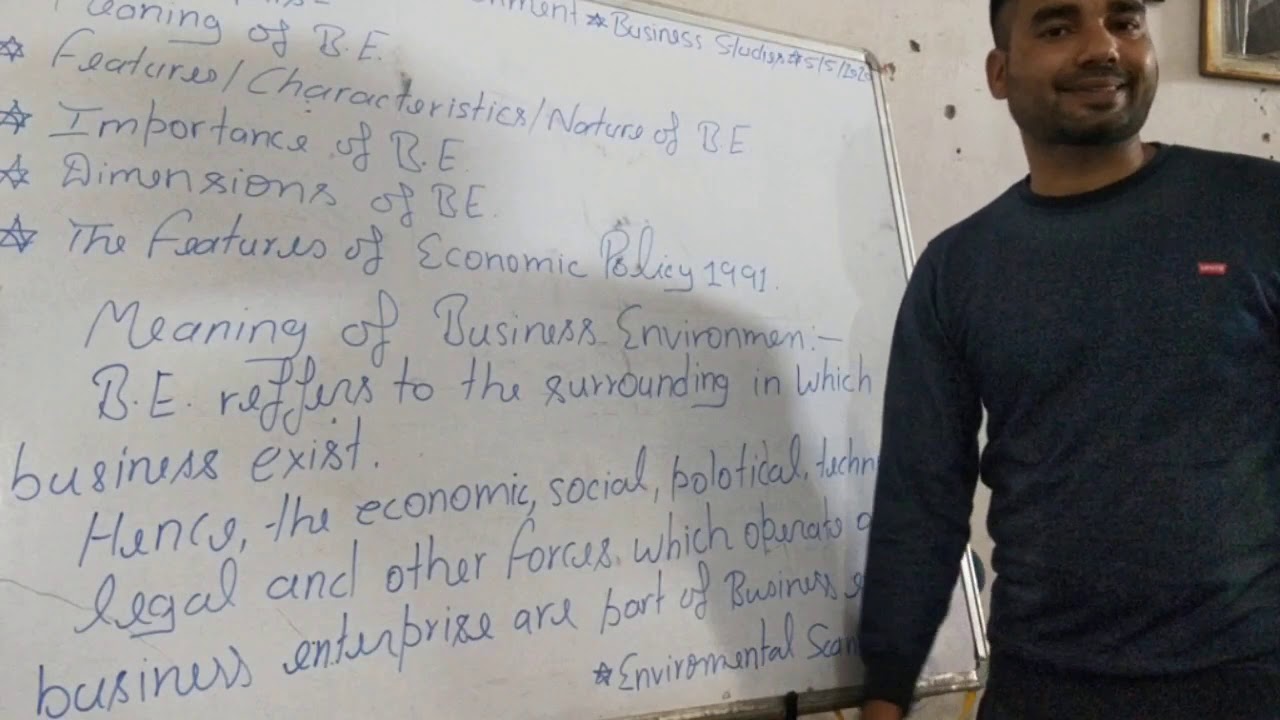 Business Studies 5/5/202
Meaning of B.E.
Features/Characteristics/Nature of BE
Importance of B.E.
Dimensions of BE.
The Features of Economic Policy 1991.
Meaning of Business Environmen:-
B.E. reffers to the surrounding in which
business exist.
Hence, the economic, social, polotical, techn
legal and other forces which operate
business enterprise are part of Business
Enviromental Scan
Levi's